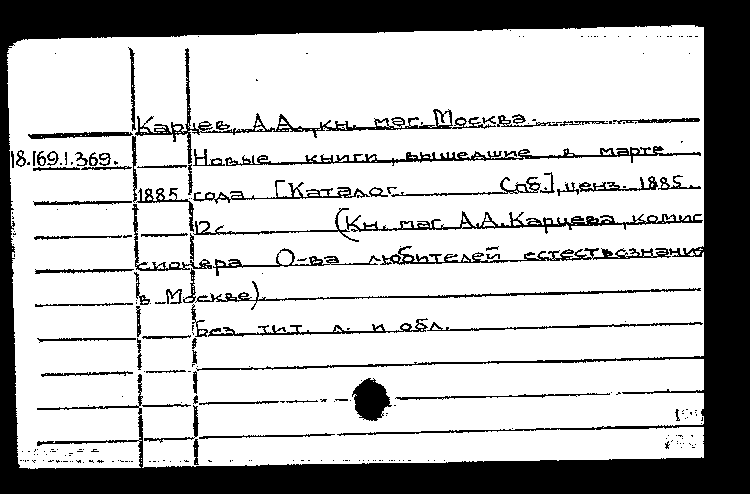 Карцев, А.А., кн. маг. Москва.
18.169.1.369. Новые книги, вышедшие в марте
1885 года. [Каталог. Спб.], ценз. 1885.
12 с. (Кн. маг. А.А.Карцева, комис
сионера О-ва любителей естествознания
в Москве).
Без тит. л. и обл.